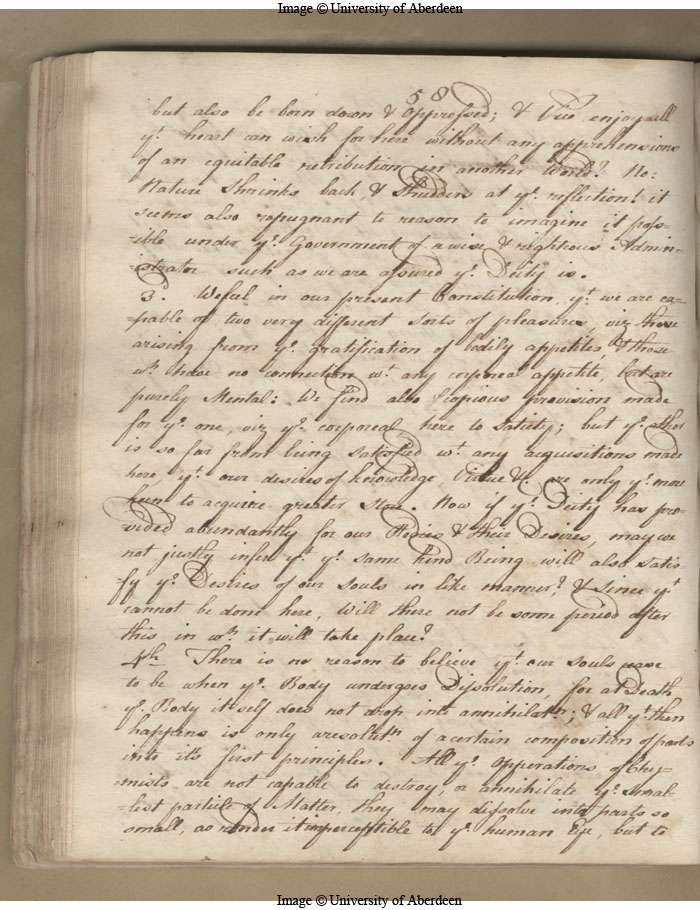 Image © University of Aberdeen
58
but also be born down & Oppressed; & Vice enjoy all
yᵉ. heart can wish for here without any apprehensions
of an equitable retribution in another World? No:
Nature Shrinks back & Shudders at yᵉ. reflection! it
seems also repugnant to reason to imagine it poss
-ible under yᵉ. Government of a wise & righteous Admin-
-istrator such as we are assured yᵉ. Deity is.
3ᵈ. We feel in our present Constitution, yᵗ. we are ca-
-pable of two very different sorts of pleasures, viz those
arising from yᵉ. gratification of bodily appetites, & those
wʰ. have no connection wᵗ. any corporeal appetite, but are
purely Mental: We find also copious provision made
for yᵉ. one, viz yᵉ. corporeal here to Satiety; but yᵉ. other
is so far from being Satisfied wᵗ. any acquisitions made
here, yᵗ. our desires of knowledge, Virtue &c. are only yᵉ. more
keen to acquire greater Store. Now if yᵉ. Deity has pro-
-vided abundantly for our Bodies & their Desires, may we
not justly infer yᵗ yᵉ. same kind Being will also satis-
-fy yᵉ. Desires of our Souls in like manner? & Since yᵗ
cannot be done here, Will there not be some period after
this in wʰ. it will take place?
4th There is no reason to believe yᵗ. our Souls cease
to be when yᵉ. Body undergoes Dissolution, for at Death
yᵉ. Body itself does not drop into annihilatⁿ.; & all yᵗ. then
happens is only a resolutⁿ. of a certain composition of parts
into it's first principles. All yᵉ. Opperations of Chy-
mists are not capable to destroy, or annihilate yᵉ. smal-
-lest particle of Matter, they may dissolve into parts so
small, as render it imperceptible to yᵉ. human Eye, but to
Image © University of Aberdeen